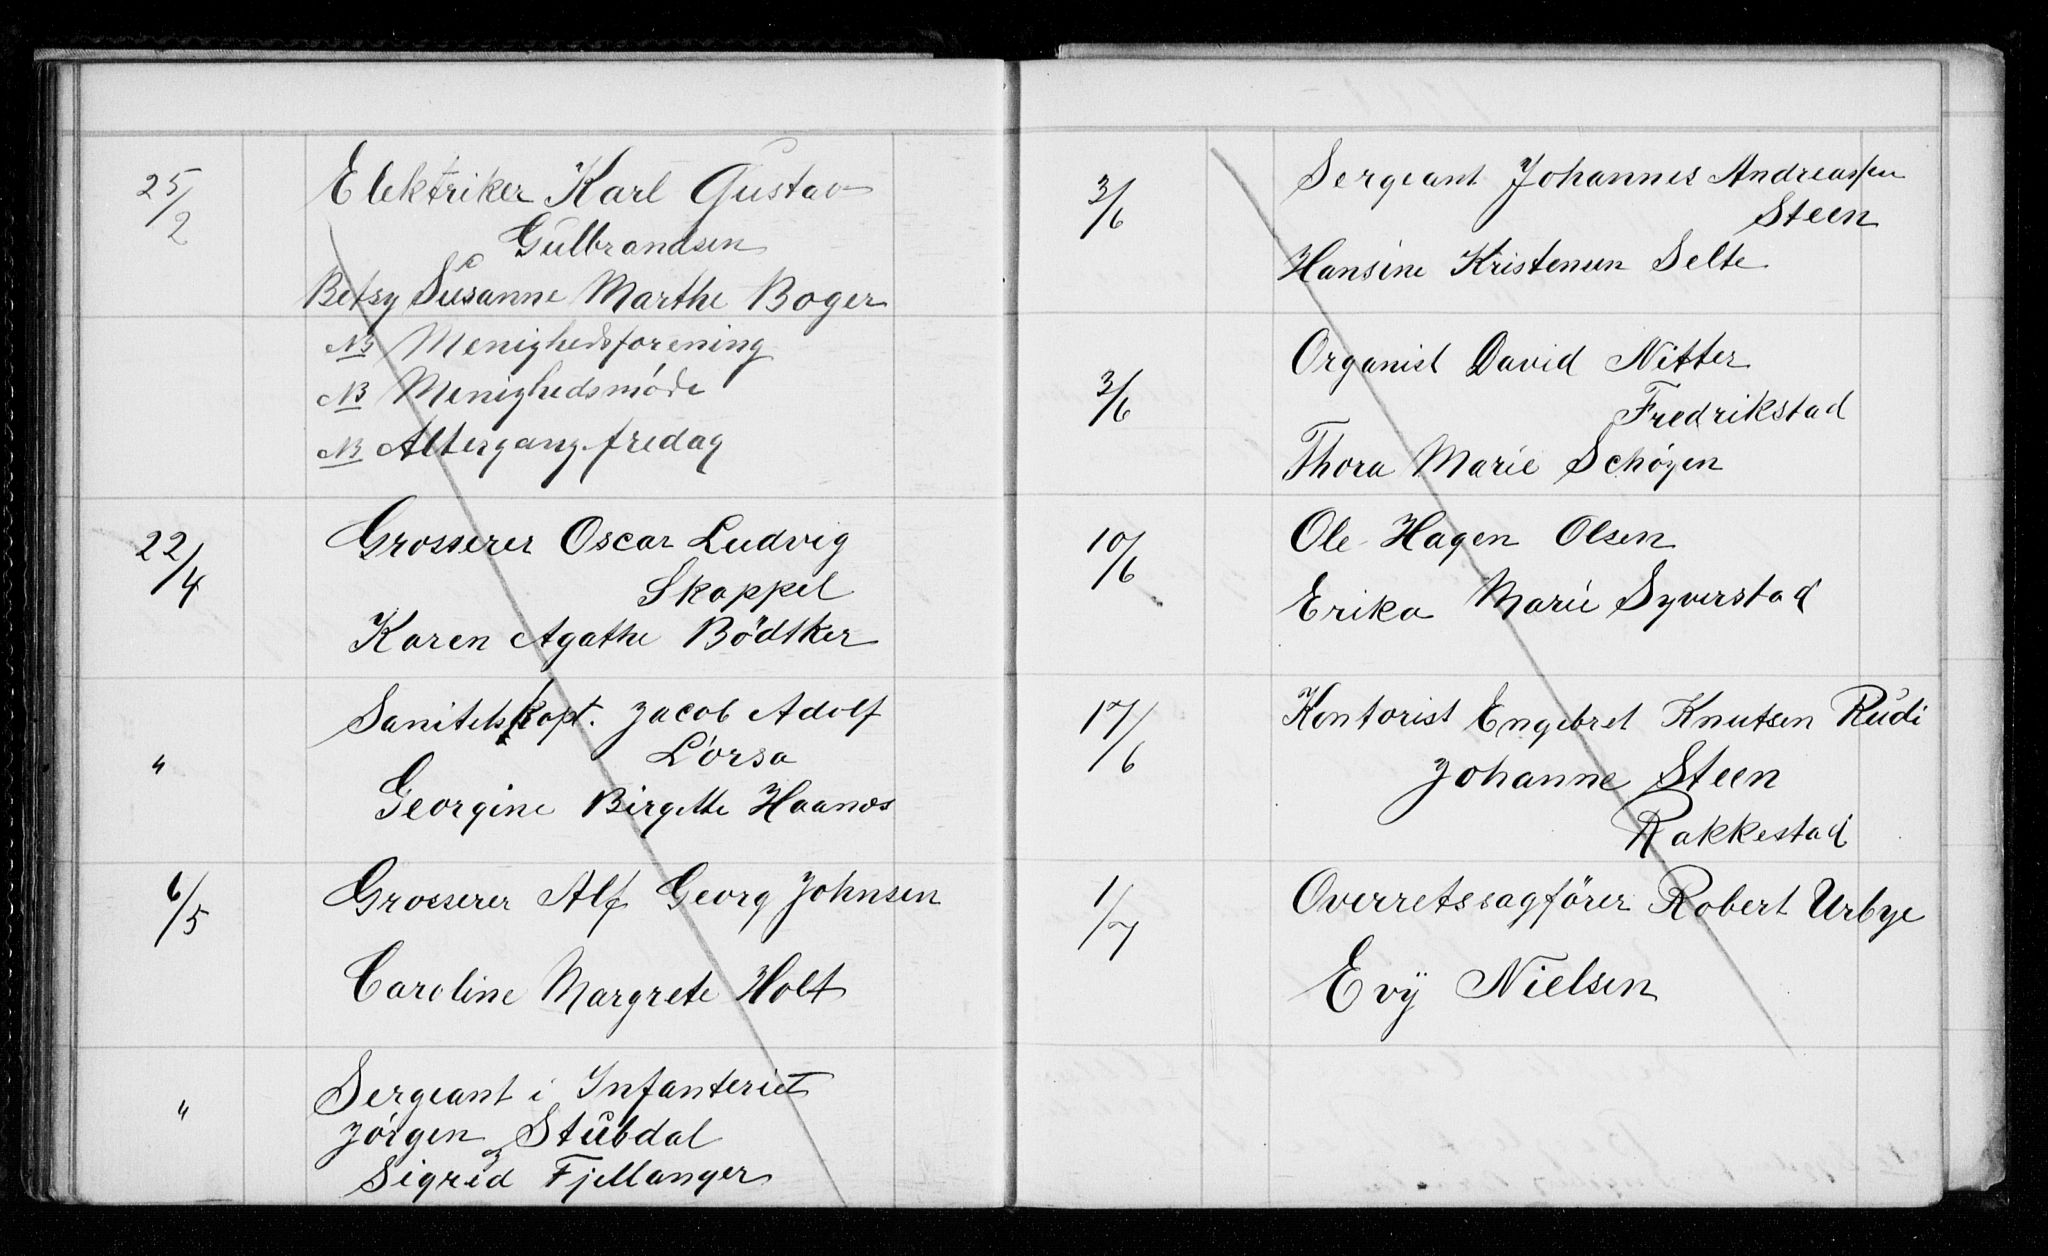 25/2
Elektriker Karl Gustav
Gulbrandsen
Betsy Susanne Marthe Boger
NB Menighedsforening
NB Menighedsmøde
NB Altergang fredag
22/4
Grosserer Oscar Ludvig
Skappel
Karen Agathe Bødtker
"
Sanitetskapt. Jacob Adolf
Lorsa
Georgine Birgitte Haanes
6/5
Grosserer Alf Georg Johnsen
Caroline Margrete Holt
"
Sergeant i Infanteriet
Jörgen Stubdal
og
Sigrid Fjellanger
3/6
Sergeant Johannes Andreassen
Steen
Hansine Kristensen Selte
3/6
Organist David Nitter
Fredrikstad
Thora Marie Schøyen
10/6
Ole Hagen Olsen
Erika Marie Syverstad
17/6
Kontorist Engebret Knutsen Rudi
Johanne Steen
Rakkestad
1/7
Overretssagfører Robert Urbye
Evÿ Nielsen